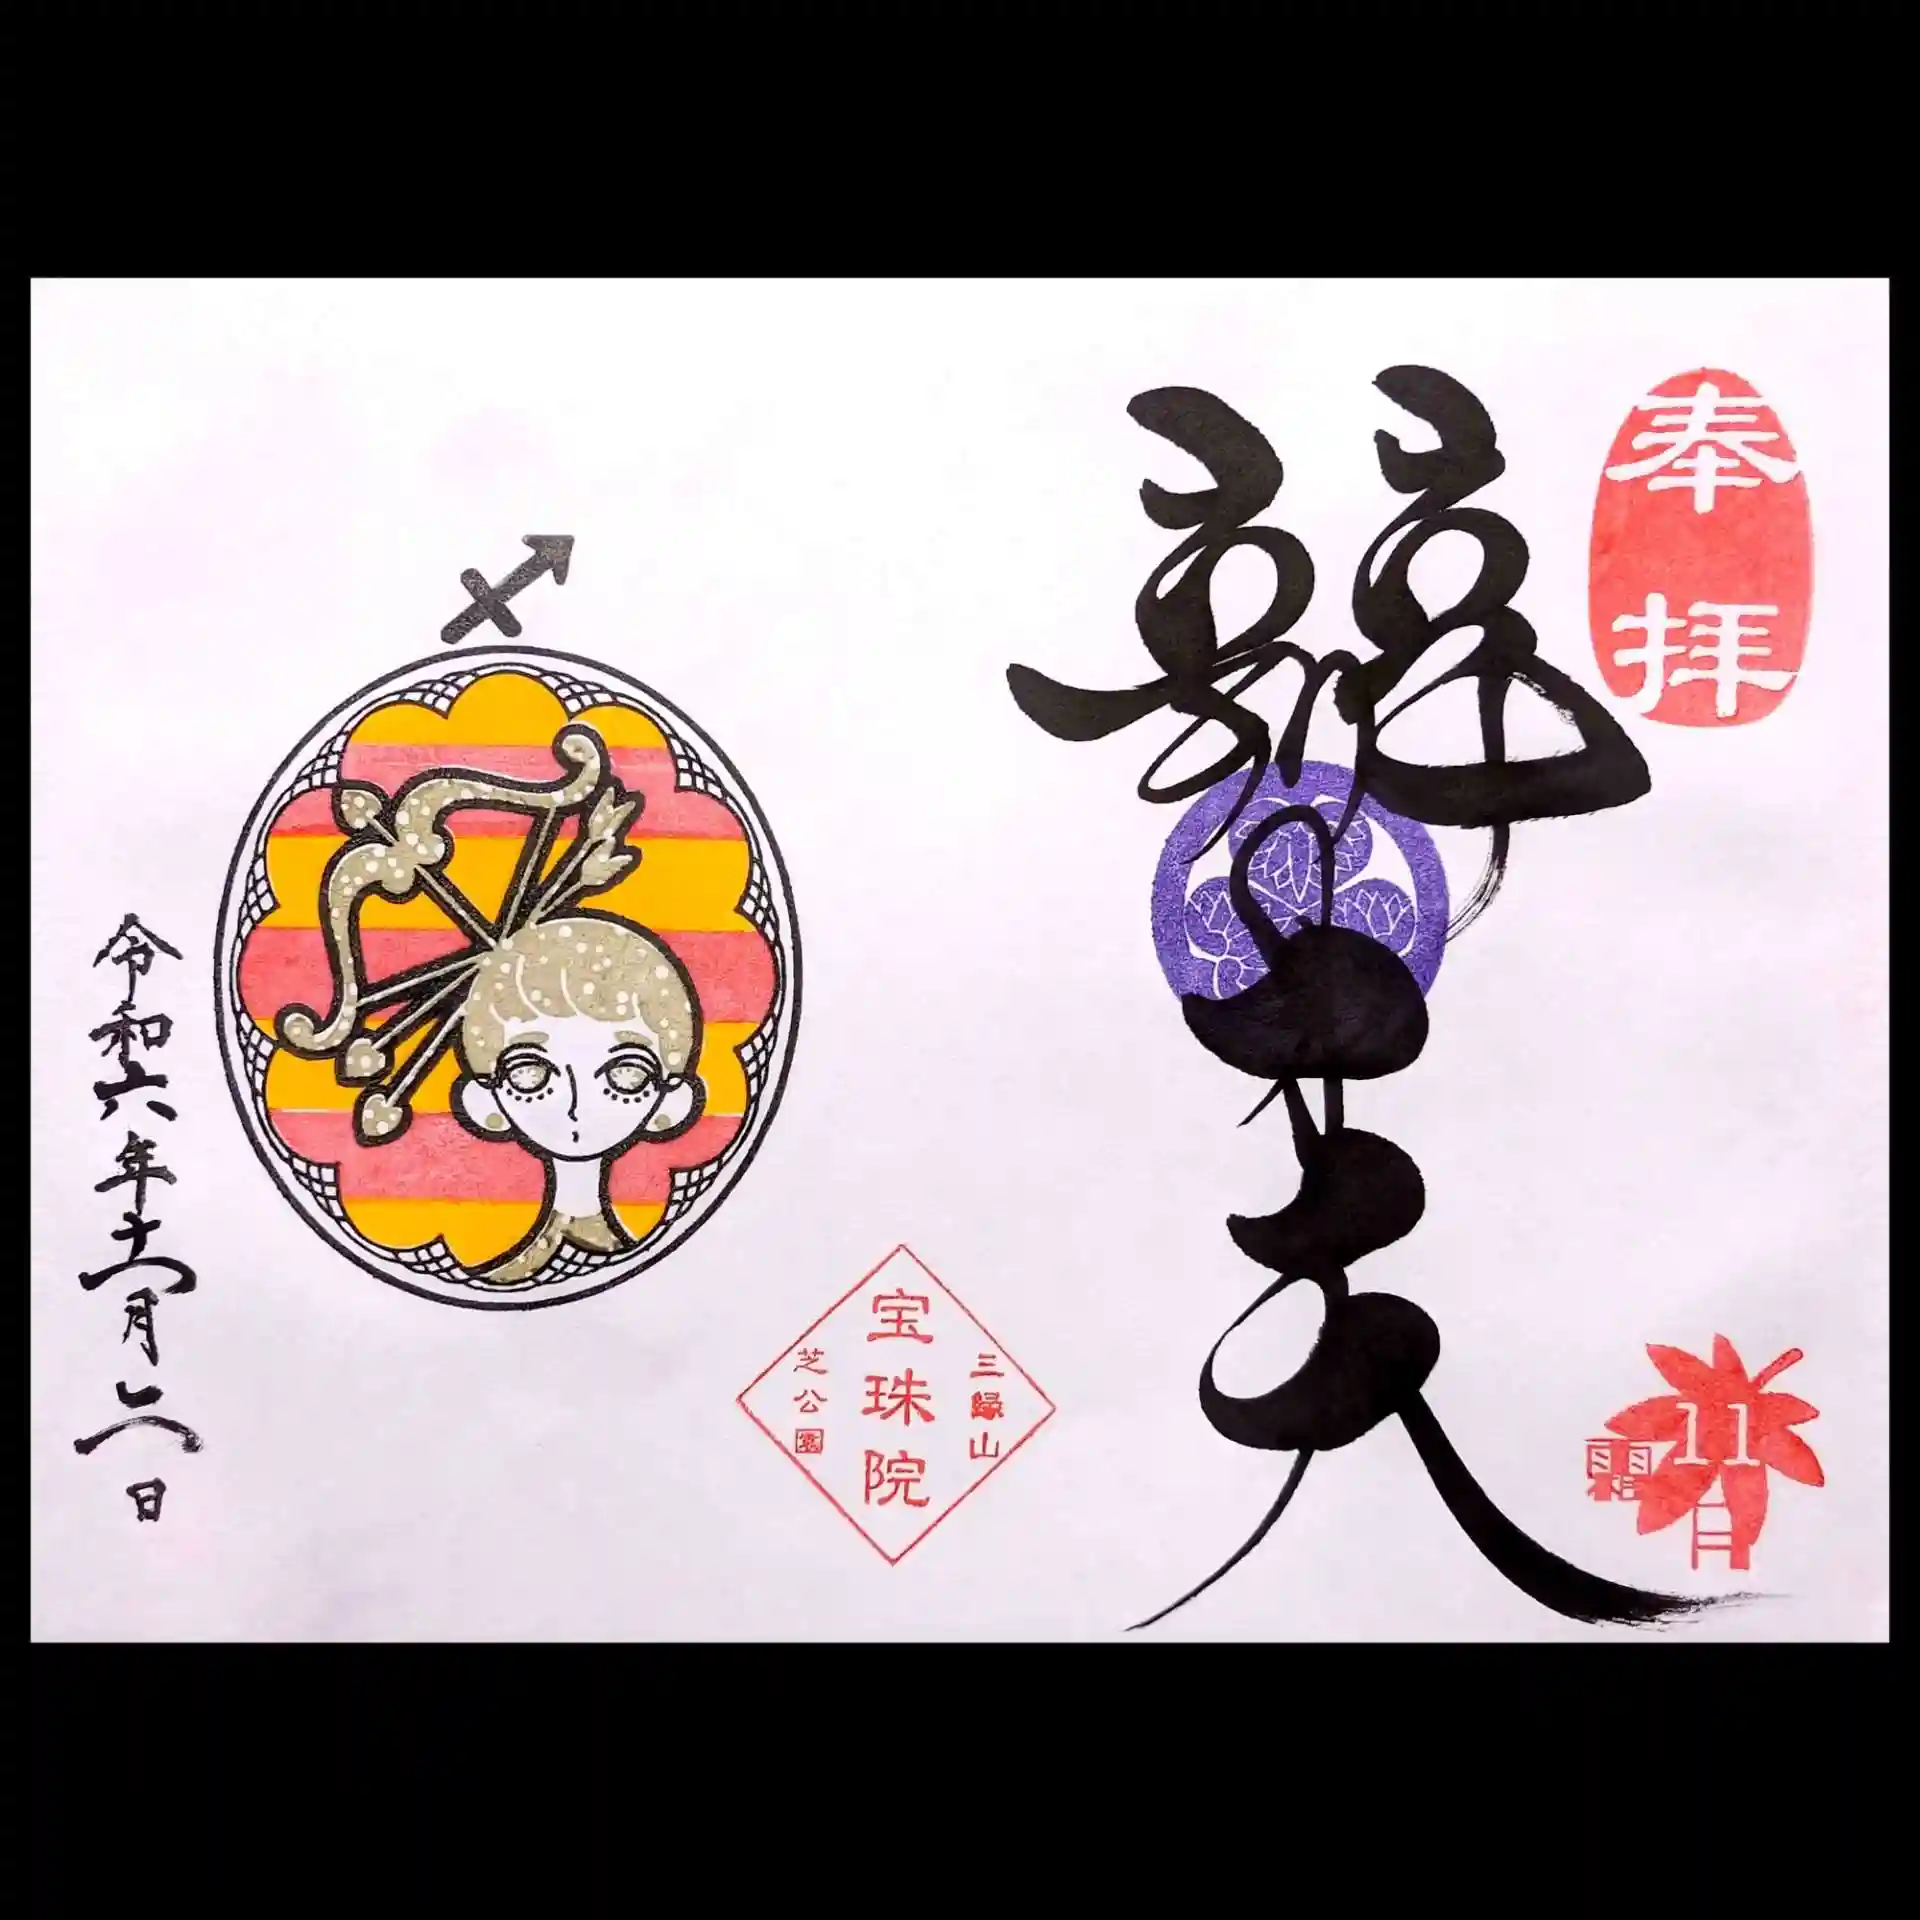 奉拝
辯才天
11月
霜
三縁山
宝珠院
芝公園
令和六年十一月二日